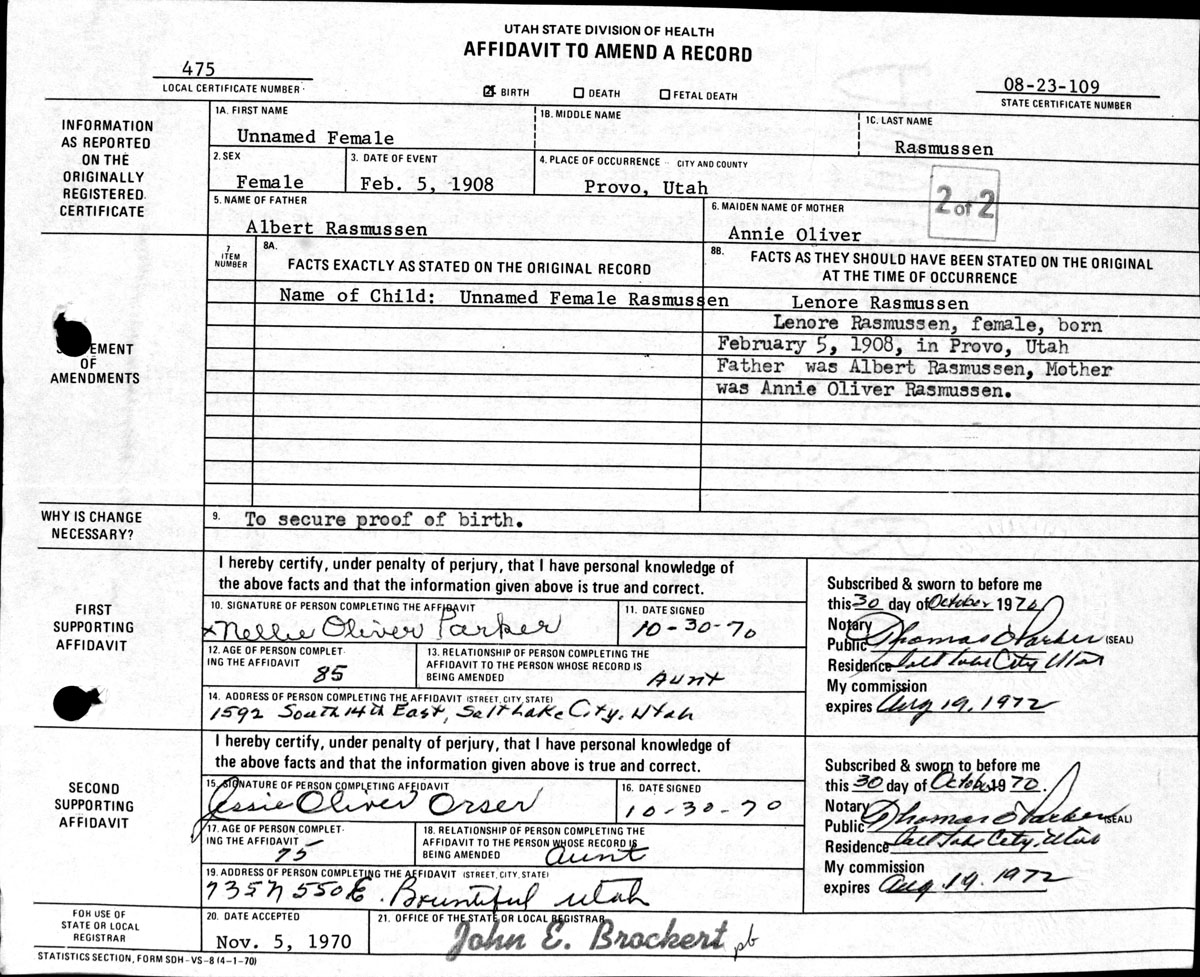 UTAH STATE DIVISION OF HEALTH
AFFIDAVIT TO AMEND A RECORD
475
LOCAL CERTIFICATE NUMBER
BIRTH DEATH FETAL DEATH
08-23-109
STATE CERTIFICATE NUMBER
INFORMATION
AS REPORTED
ON THE
ORIGINALLY
REGISTERED
CERTIFICATE
1A. FIRST NAME 1B. MIDDLE NAME 1C. LAST NAME
Unnamed Female Rasmussen
2. SEX 3. DATE OF EVENT 4. PLACE OF OCCURRENCE - CITY AND COUNTY
Female Feb. 5, 1908 Provo, Utah
2 of 2
5. NAME OF FATHER 6. MAIDEN NAME OF MOTHER
Albert Rasmussen Annie Oliver
STATEMENT
OF
AMENDMENTS
7
ITEM
NUMBER
8A.
FACTS EXACTLY AS STATED ON THE ORIGINAL RECORD
8B.
FACTS AS THEY SHOULD HAVE BEEN STATED ON THE ORIGINAL
AT THE TIME OF OCCURRENCE
Name of Child: Unnamed Female Rasmussen Lenore Rasmussen
Lenore Rasmussen, female, born
February 5, 1908, in Provo, Utah
Father was Albert Rasmussen, Mother
was Annie Oliver Rasmussen.
WHY IS CHANGE
NECESSARY?
9. To secure proof of birth.
FIRST
SUPPORTING
AFFIDAVIT
I hereby certify, under penalty of perjury, that I have personal knowledge of
the above facts and that the information given above is true and correct.
10. SIGNATURE OF PERSON COMPLETING THE AFFIDAVIT 11. DATE SIGNED
x Nellie Oliver Parker 10-30-70
12. AGE OF PERSON COMPLET-
ING THE AFFIDAVIT
85
13. RELATIONSHIP OF PERSON COMPLETING THE
AFFIDAVIT TO THE PERSON WHOSE RECORD IS
BEING AMENDED Aunt
14. ADDRESS OF PERSON COMPLETING THE AFFIDAVIT (STREET, CITY, STATE)
1592 South 14th East, Salt Lake City, Utah
Subscribed & sworn to before me
this 30 day of October 1970
Notary
Public Thomas O Parker (SEAL)
Residence Salt Lake City, Utah
My commission
expires Aug 19, 1972
SECOND
SUPPORTING
AFFIDAVIT
I hereby certify, under penalty of perjury, that I have personal knowledge of
the above facts and that the information given above is true and correct.
15. SIGNATURE OF PERSON COMPLETING AFFIDAVIT 16. DATE SIGNED
Jessie Oliver Orser 10-30-70
17. AGE OF PERSON COMPLET-
ING THE AFFIDAVIT
75
18. RELATIONSHIP OF PERSON COMPLETING THE
AFFIDAVIT TO THE PERSON WHOSE RECORD IS
BEING AMENDED Aunt
19. ADDRESS OF PERSON COMPLETING THE AFFIDAVIT (STREET, CITY, STATE)
735 N 550 E. Bountiful Utah
Subscribed & sworn to before me
this 30 day of October 1970.
Notary
Public Thomas O Parker (SEAL)
Residence Salt Lake City, Utah
My commission
expires Aug 19, 1972
FOR USE OF
STATE OR LOCAL
REGISTRAR
20. DATE ACCEPTED 21. OFFICE OF THE STATE OR LOCAL REGISTRAR
Nov. 5, 1970 John E. Brockert pb
STATISTICS SECTION, FORM SDH-VS-8 (4-1-70)